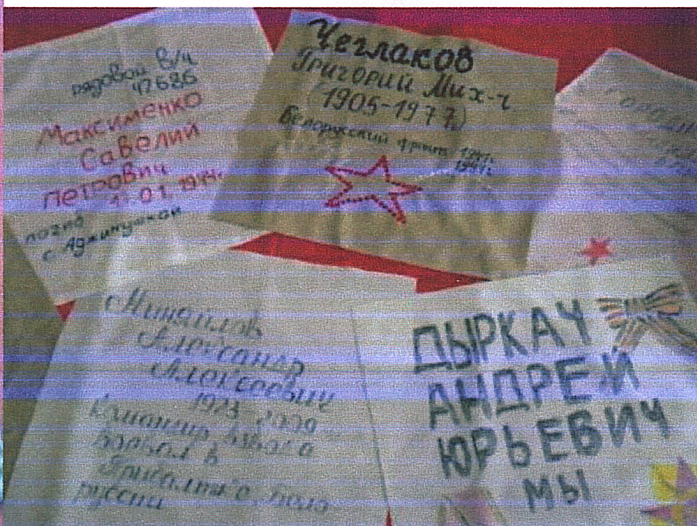 рядовой в/ч
47686
Максименко
Савелий
Петрович
01.1944г.
с. Аджимушкай
Чеглаков
Григорий Мих-ч
(1905-1977г.)
Белорусский фронт
Миняйлов
Александр
Алексеевич
1923-2009
Командир взвода
воевал в
Прибалтике, Бело
руссии
ДЫРКАЧ
АНДРЕЙ
ЮРЬЕВИЧ
МЫ